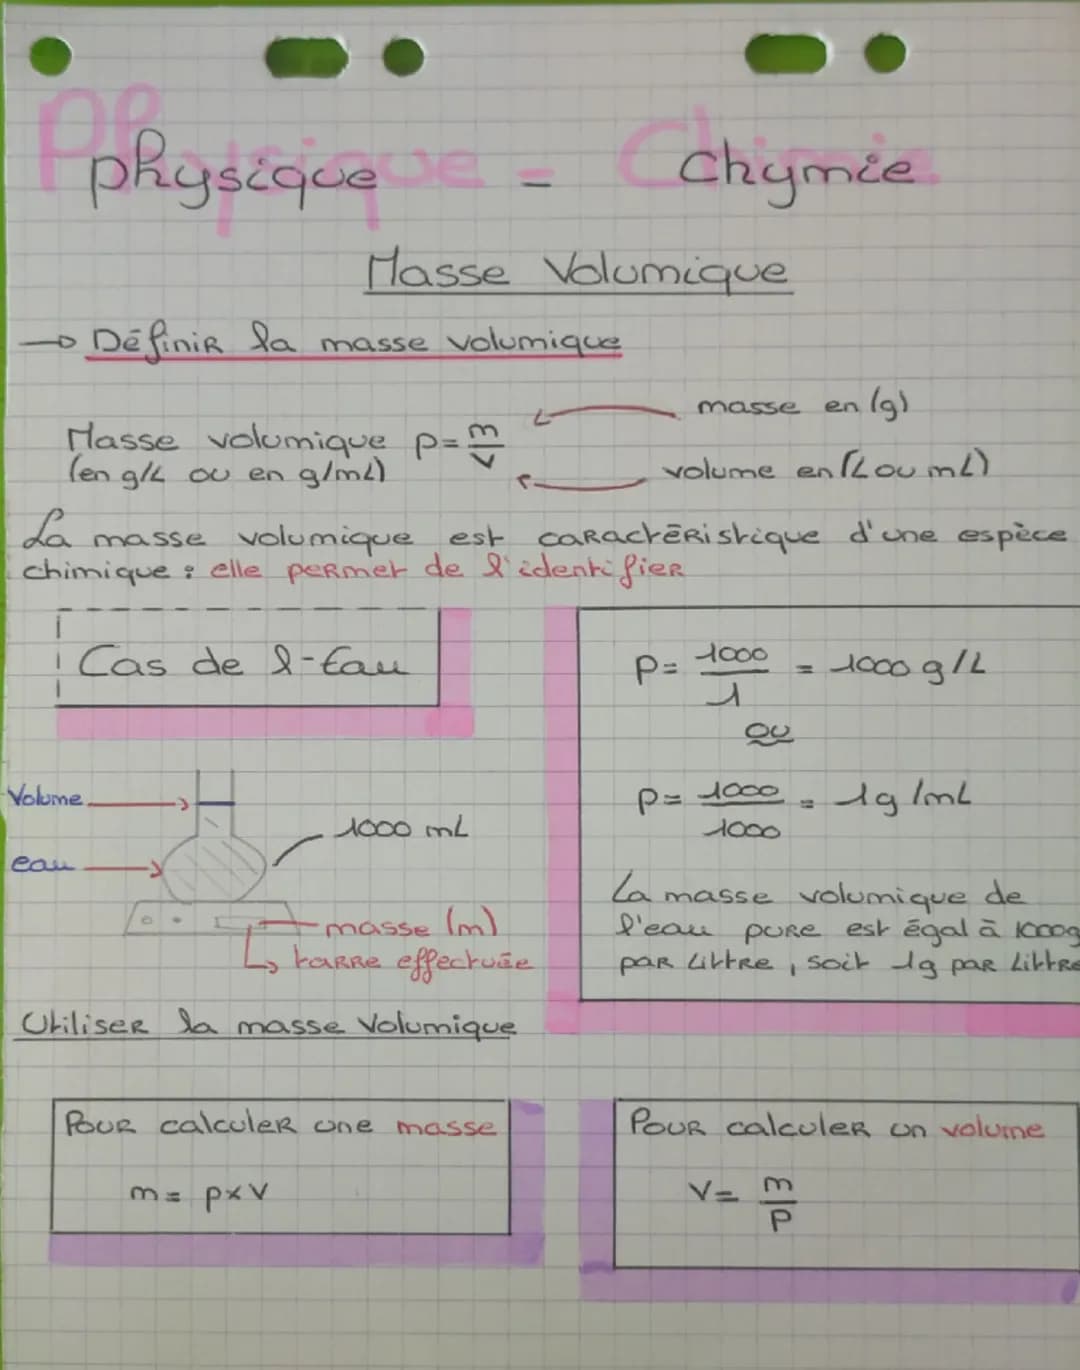 Physique - Chimie
physique - chymie
Masse Volumique
→ Définir la masse volumique
masse en (g)
Masse volumique p = m/v
(en g/L ou en g/mL)
volume en (L ou mL)
La masse volumique est caractéristique d'une espèce
chimique : elle permet de l'identifier
Cas de l-Eau
p = 1000/1 = 1000 g/L
ou
p = 1000/1000 = 1g/mL
Volume
1000 mL
eau
masse (m)
tarre effectuée
La masse volumique de
l'eau pure est égal à 1000g
par Littre, soit 1g par Littre
Utiliser la masse Volumique
Pour calculer une masse
m = p x v
Pour calculer un volume
v = m/p